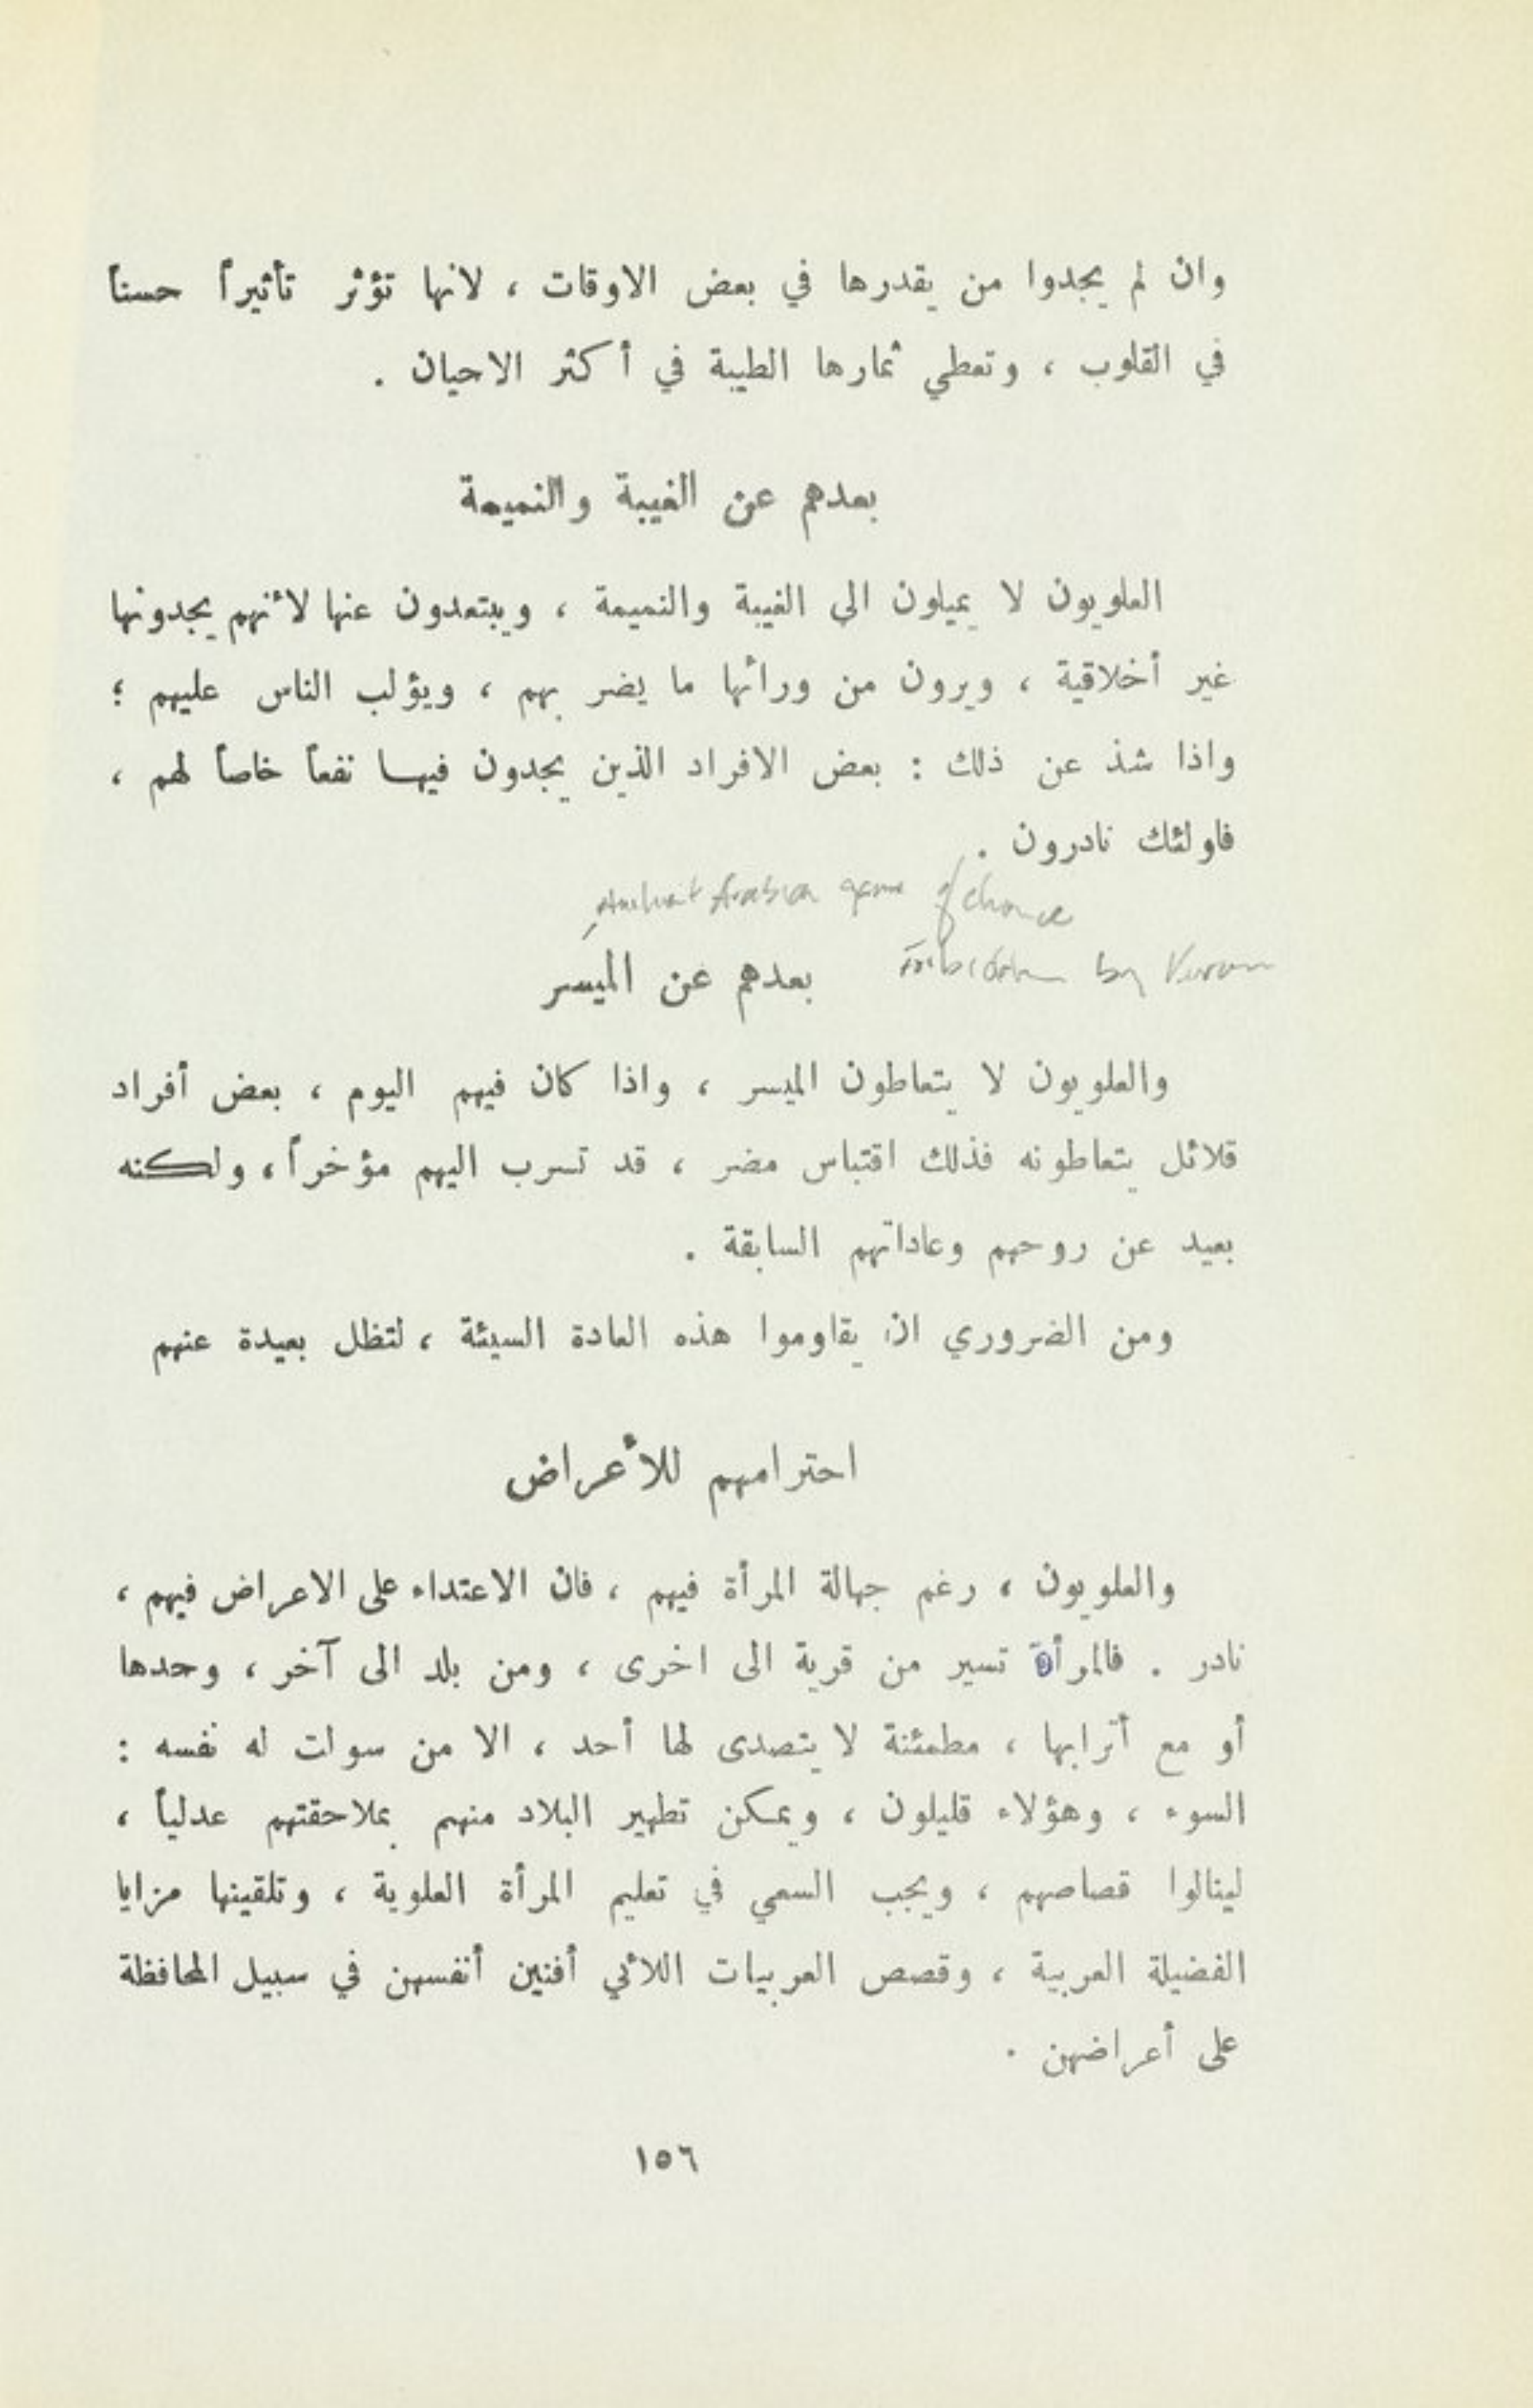 وان لم يجدوا من يقدرها في بعض الاوقات ، لانها تؤثر تأثيراً حسناً
في القلوب ، وتعطي ثمارها الطيبة في أكثر الاحيان .
بعدهم عن الغيبة والنميمة
العلويون لا يميلون الى الغيبة والنميمة ، ويبتعدون عنها لأنهم يجدونها
غير أخلاقية ، ويرون من ورائها ما يضر بهم ، ويؤلب الناس عليهم ؛
واذا شذ عن ذلك : بعض الافراد الذين يجدون فيها نفعاً خاصاً لهم ،
فاولئك نادرون .
Arabian game of chance
forbidden by Kuran
بعدهم عن الميسَر
والعلويون لا يتعاطون الميسر ، واذا كان فيهم اليوم ، بعض أفراد
قلائل يتعاطونه فذلك اقتباس مضر ، قد تسرب اليهم مؤخراً ، ولكنه
بعيد عن روحهم وعاداتهم السابقة .
ومن الضروري ان يقاوموا هذه العادة السيئة ، لتظل بعيدة عنهم
احترامهم للأعراض
والعلويون ، رغم جهالة المرأة فيهم ، فان الاعتداء على الاعراض فيهم ،
نادر . فالمرأة تسير من قرية الى اخرى ، ومن بلد الى آخر ، وحدها
أو مع أترابها ، مطمئنة لا يتصدى لها أحد ، الا من سولت له نفسه :
السوء ، وهؤلاء قليلون ، ويمكن تطهير البلاد منهم بملاحقتهم عدلياً ،
لينالوا قصاصهم ، ويجب السعي في تعليم المرأة العلوية ، وتلقينها مزايا
الفضيلة العربية ، وقصص العربيات اللائي أفنين أنفسهن في سبيل المحافظة
على أعراضهن .
١٥٦